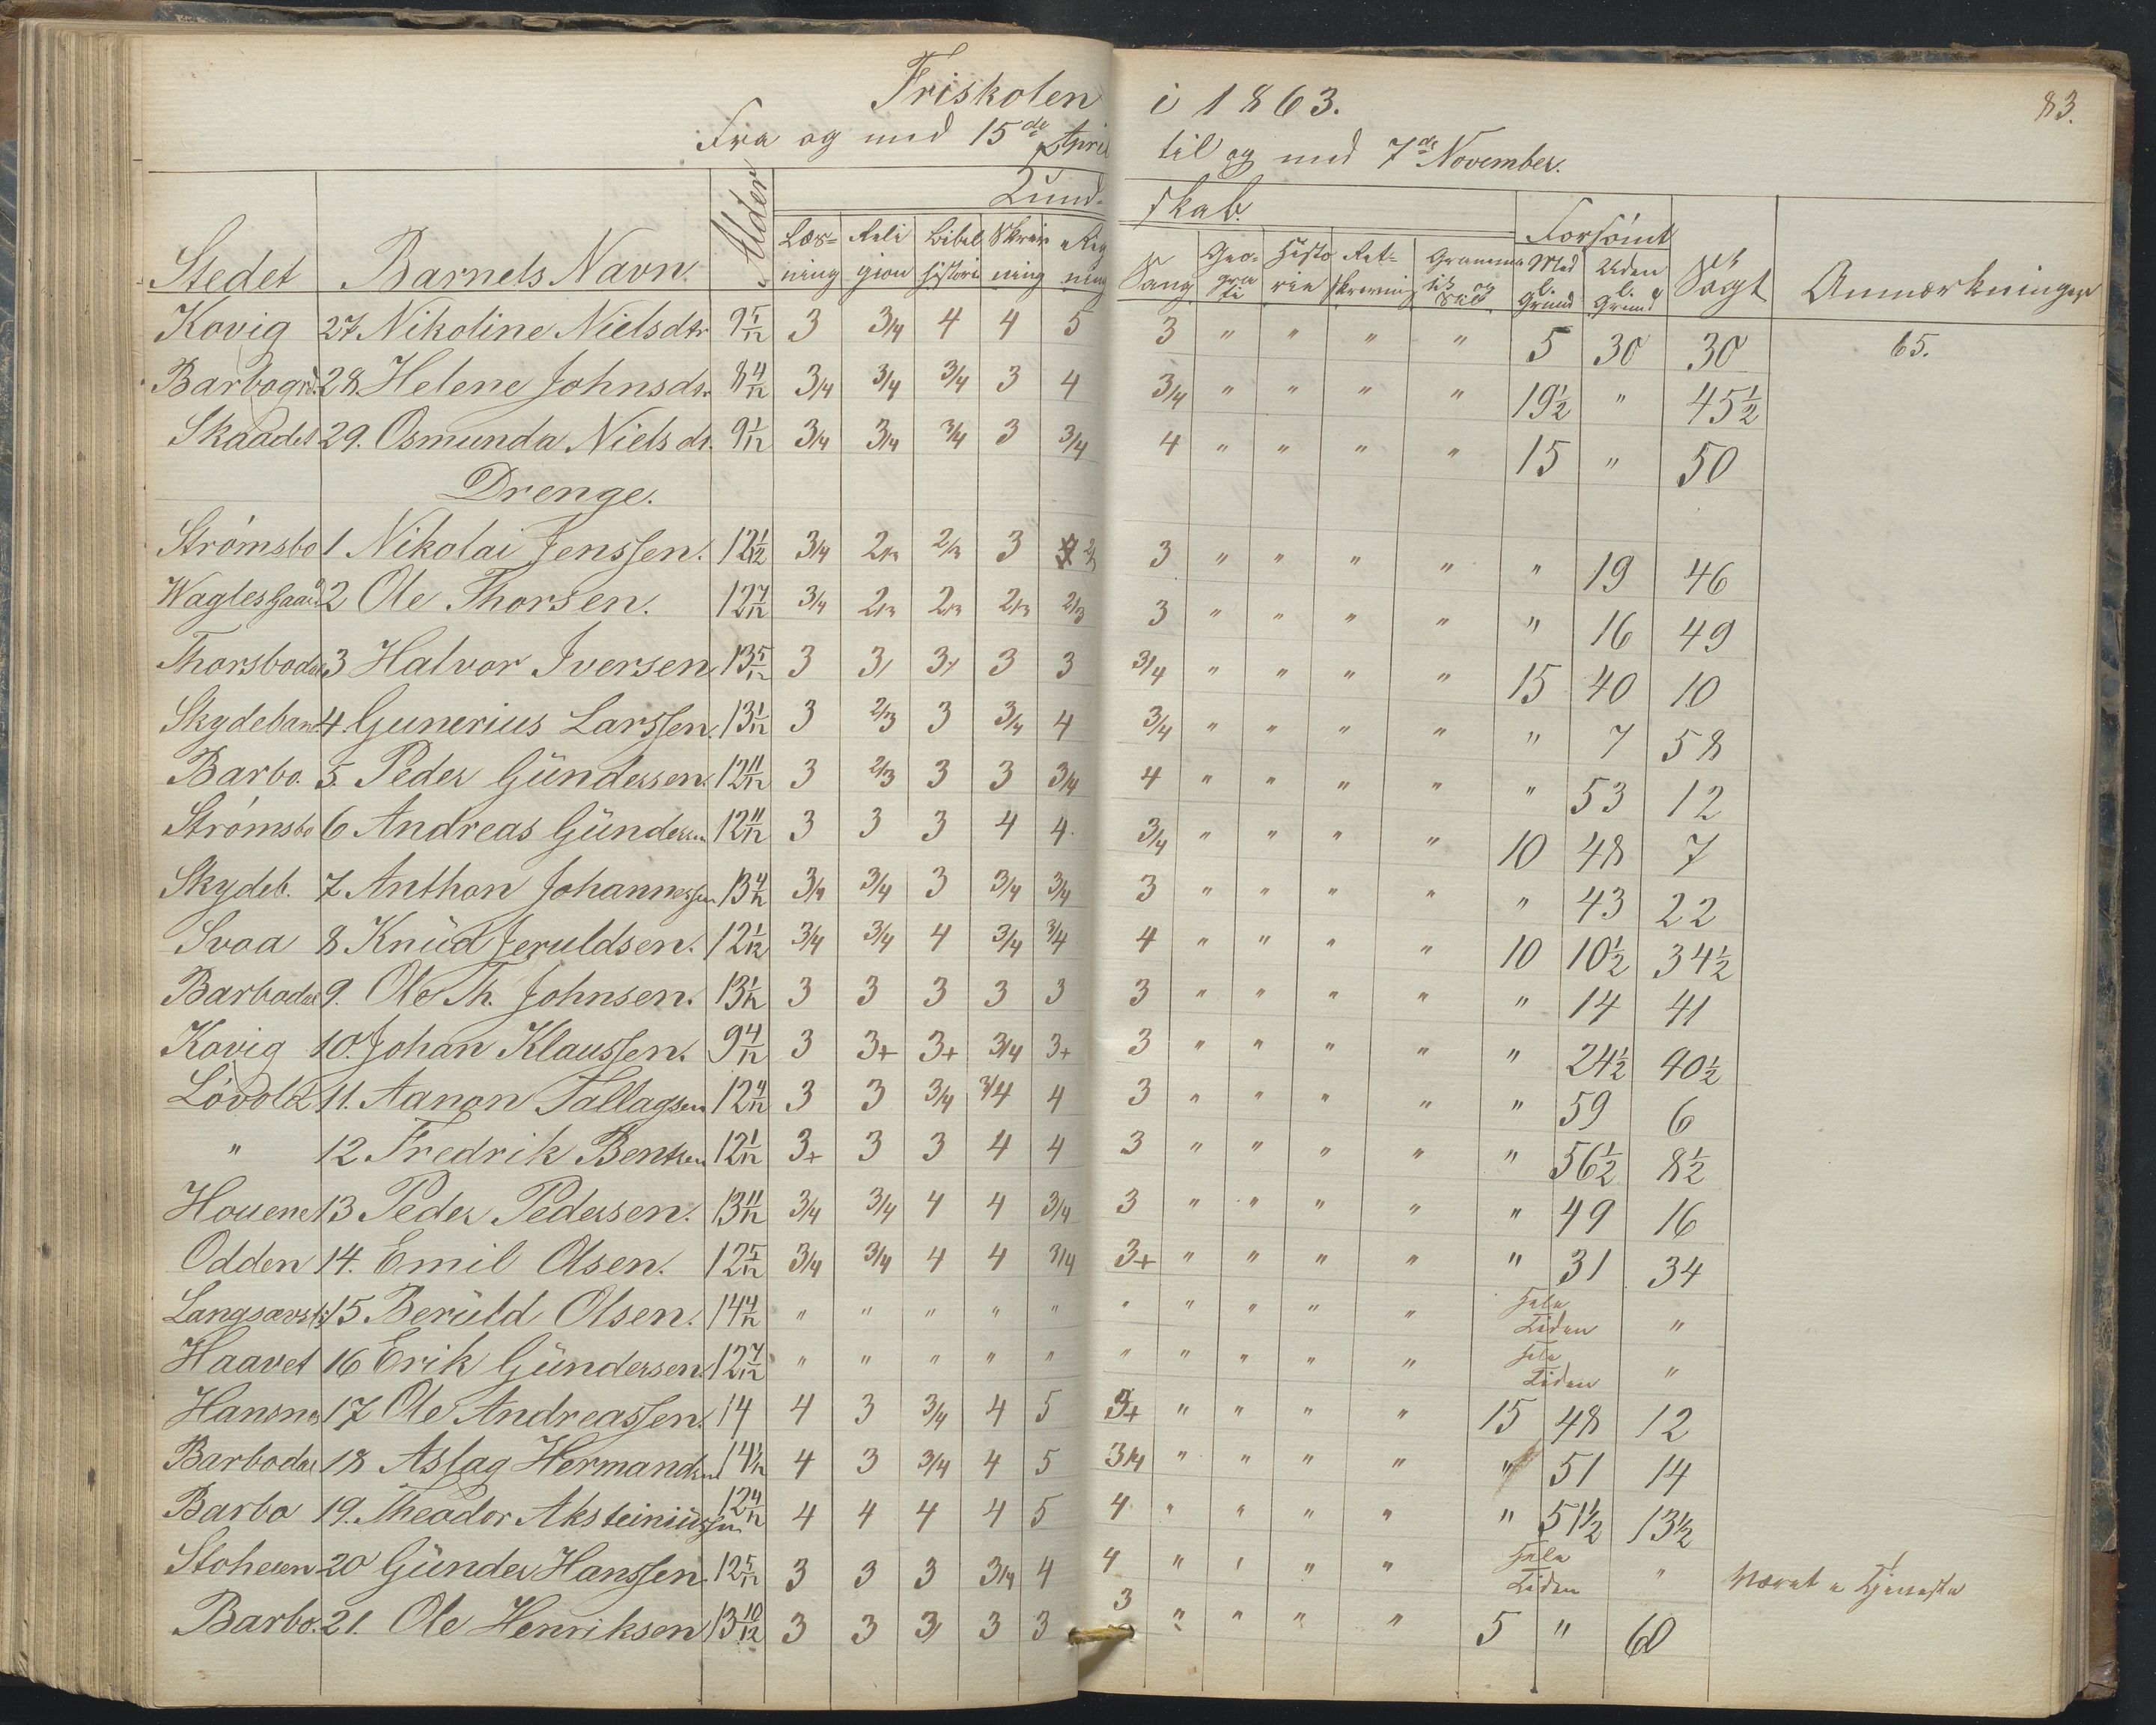 Friskolen i 1863. 83.
Fra og med 15de April til og med 7de November.
Kund- skab. Forsömt
Stedet Barnets Navn. Alder Læs-ning Reli gion Bibel historie Skriv ning Reg ning Sang Geo-gra fi Histo rie Ret-skrivning Gramma tik og Stil Med l. Grund Uden l. Grund Søgt Anmærkninger
Kovig 27. Nikoline Nielsdtr 9 5/12 3 3/4 4 4 5 3 " " " " 5 30 30 65.
Barbogrd. 28. Helene Johnsdtr 8 4/12 3/4 3/4 3/4 3 4 3/4 " " " " 19½ " 45½
Skaadet 29. Osmunda Nielsdt. 9 1/12 3/4 3/4 3/4 3 3/4 4 " " " " 15 " 50
Drenge.
Strömsbo 1 Nikolai Jenssen. 12 1/12 3/4 2/3 2/3 3 2/3 3 " " " " " 19 46
Waglesgaard 2 Ole Thorsen. 12 7/12 3/4 2/3 2/3 2/3 2/3 3 " " " " " 16 49
Thorsbodal 3 Halvor Iversen 13 5/12 3 3/ 3/ 3 3 3/4 " " " " 15 40 10
Skydeban 4. Gunerius Larssen. 13 1/12 3 2/3 3 3/4 4 3/4 " " " " " 7 58
Barbo. 5. Peder Gündersen. 12 11/12 3 2/3 3 3 3/4 4 " " " " " 53 12
Strömsbo 6 Andreas Gündersen 12 11/12 3 3 3 4 4. 3/4 " " " " 10 48 7
Skydeb. 7 Anthon Johannessen 13 4/12 3/4 3/4 3 3/4 3/4 3 " " " " " 43 22
Svaa 8 Knüd Jeruldsen. 12 1/12 3/4 3/4 4 3/4 3/4 4 " " " " 10 10½ 34½
Barbodal 9. Ole Th. Johnsen. 13 1/12 3 3 3 3 3 3 " " " " " 14 41
Kovig 10. Johan Klaussen. 9 4/12 3 3+ 3+ 3/4 3+ 3 " " " " " 24½ 40½
Lövold 11. Aanon Tallagsen 12 4/12 3 3 3/4 3/4 4 3 " " " " " 59 6
" 12 Fredrik Bentsen 12 1/12 3+ 3 3 4 4 3 " " " " " 56½ 8½
Houene 13 Peder Pedersen. 13 11/12 3/4 3/4 4 4 3/4 3 " " " " " 49 16
Odden 14. Emil Olsen. 12 5/12 3/4 3/4 4 4 3/4 3+ " " " " " 31 34
15 Berüld Olsen. 14 4/12 " " " " " " " " " " Hele Tiden "
Haavet 16 Erik Gündersen 12 7/12 " " " " " " " " " " Hele Tiden "
Hansnæs 17 Ole Andreassen. 14 4 3 3/4 4 5 3+ " " " " 15 48 12
Barbodal 18 Aslag Hermandsen 14 1/12 4 3 3/4 4 5 3/4 " " " " " 51 14
Barbo 19. Theodor Aksteiniüssen 12 4/12 4 4 4 4 5 4 " " " " " 51½ 13½
Stoheien 20 Günder Hanssen 12 5/12 3 3 3 3/4 4 4 " " " " Hele Tiden " Været i Tjeneste
Barbo. 21. Ole Henriksen 13 10/12 3 3 3/ 3 3 3 " " " " 5 " 60